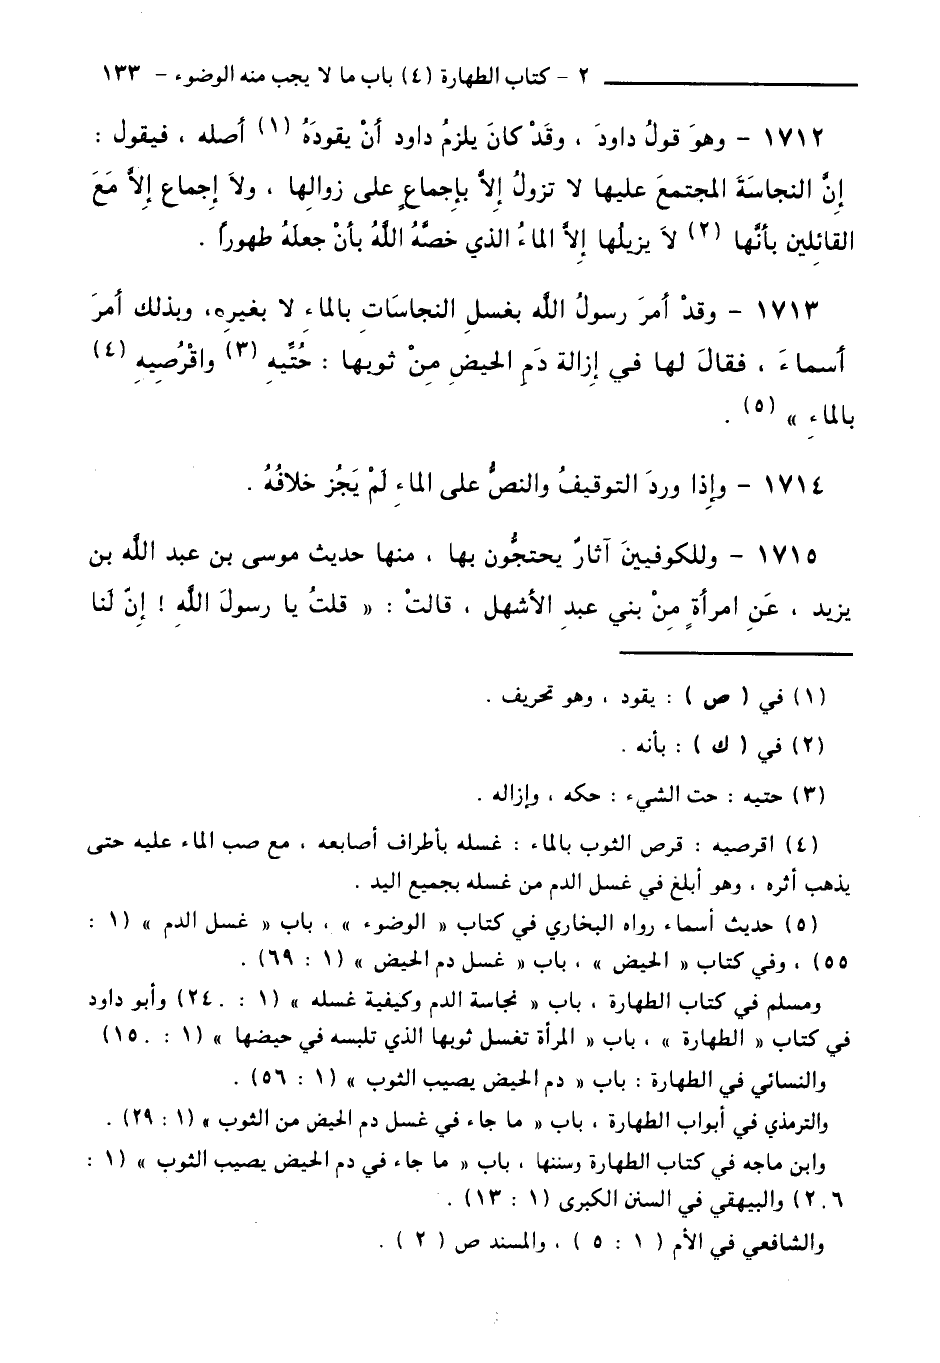 ٢ - كتاب الطهارة (٤) باب ما لا يجب منه الوضوء - ١٣٣
١٧١٢ - وهوَ قولُ داودَ ، وقَدْ كانَ يلزمُ داود أنْ يقودَهُ (١) أصله ، فيقول :
إنَّ النجاسَةَ المجتمعَ عليها لا تزولُ إلاَّ بإجماعٍ على زوالِها ، ولاَ إجماع إلاَّ مَعَ
القائلِين بأنَّها (٢) لاَ يزيلُها إلاَّ الماءُ الذي خصَّهُ اللَّهُ بأنْ جعلَهُ طهوراً .
١٧١٣ - وقدْ أمرَ رسولُ اللَّه بغسلِ النجاسَاتِ بالماءِ لا بغيرِه، وبذلك أمرَ
أسماءَ ، فقالَ لها في إزالة دَمِ الحيضِ مِنْ ثوبها : حُتَّيهِ (٣) واقْرُصِيهِ (٤)
بالماءِ » (٥) .
١٧١٤ - وإذا وردَ التوقيفُ والنصُّ على الماءِ لَمْ يَجُز خلافُهُ .
١٧١٥ - وللكوفيينَ آثارٌ يحتجُّون بها ، منها حديث موسى بن عبد اللَّه بن
يزيد ، عَنِ امرأةٍ مِنْ بني عبدِ الأشهل ، قالتْ : « قلتُ يا رسولَ اللَّهِ ! إنَّ لَنا
(١) في ( ص ) : يقود ، وهو تحريف .
(٢) في ( ك ) : بأنه .
(٣) حتيه : حت الشيء : حكه ، وإزاله .
(٤) اقرصيه : قرص الثوب بالماء : غسله بأطراف أصابعه ، مع صب الماء عليه حتى
يذهب أثره ، وهو أبلغ في غسل الدم من غسله بجميع اليد .
(٥) حديث أسماء رواه البخاري في كتاب « الوضوء » ، باب « غسل الدم » (١ :
٥٥) ، وفي كتاب « الحيض » ، باب « غسل دم الحيض » (١ : ٦٩) .
ومسلم في كتاب الطهارة ، باب « نجاسة الدم وكيفية غسله » (١ : ٢٤٠) وأبو داود
في كتاب « الطهارة » ، باب « المرأة تغسل ثوبها الذي تلبسه في حيضها » (١ : ١٥٠)
والنسائي في الطهارة : باب « دم الحيض يصيب الثوب » (١ : ٥٦) .
والترمذي في أبواب الطهارة ، باب « ما جاء في غسل دم الحيض من الثوب » (١ : ٢٩) .
وابن ماجه في كتاب الطهارة وسننها ، باب « ما جاء في دم الحيض يصيب الثوب » (١ :
٢٠٦) والبيهقي في السنن الكبرى (١ : ١٣) .
والشافعي في الأم ( ١ : ٥ ) ، والمسند ص ( ٢ ) .